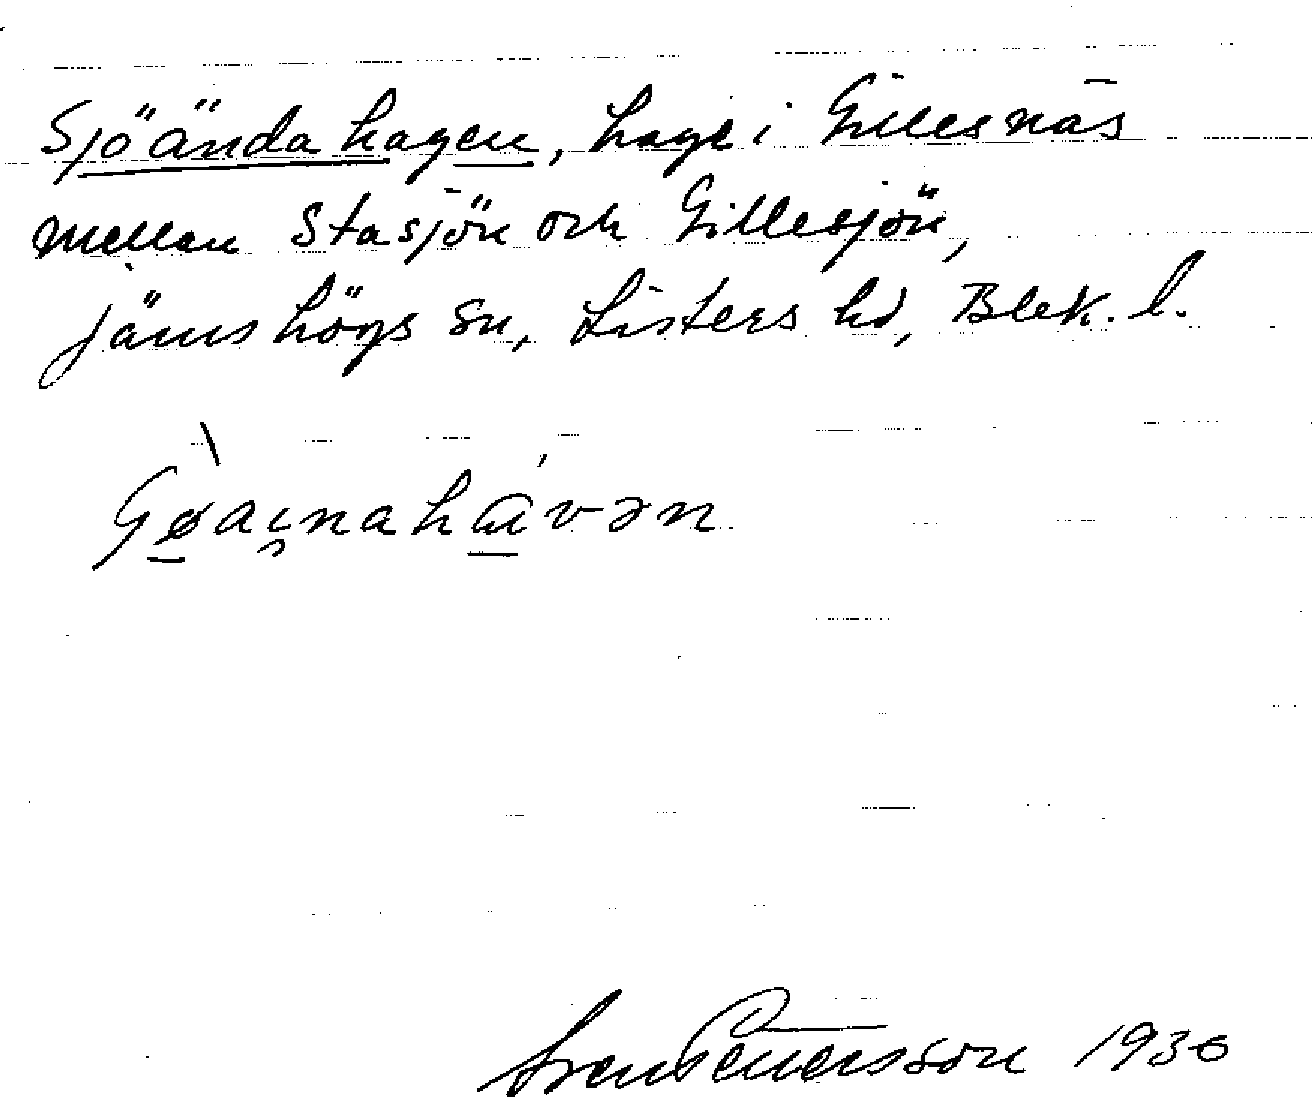 Sjöändahagen, hage i Gillesnäs
mellan Stasjön och Gillesjön,
Jämshögs sn, Listers hd, Blek. l.
Sven Pettersson 1930